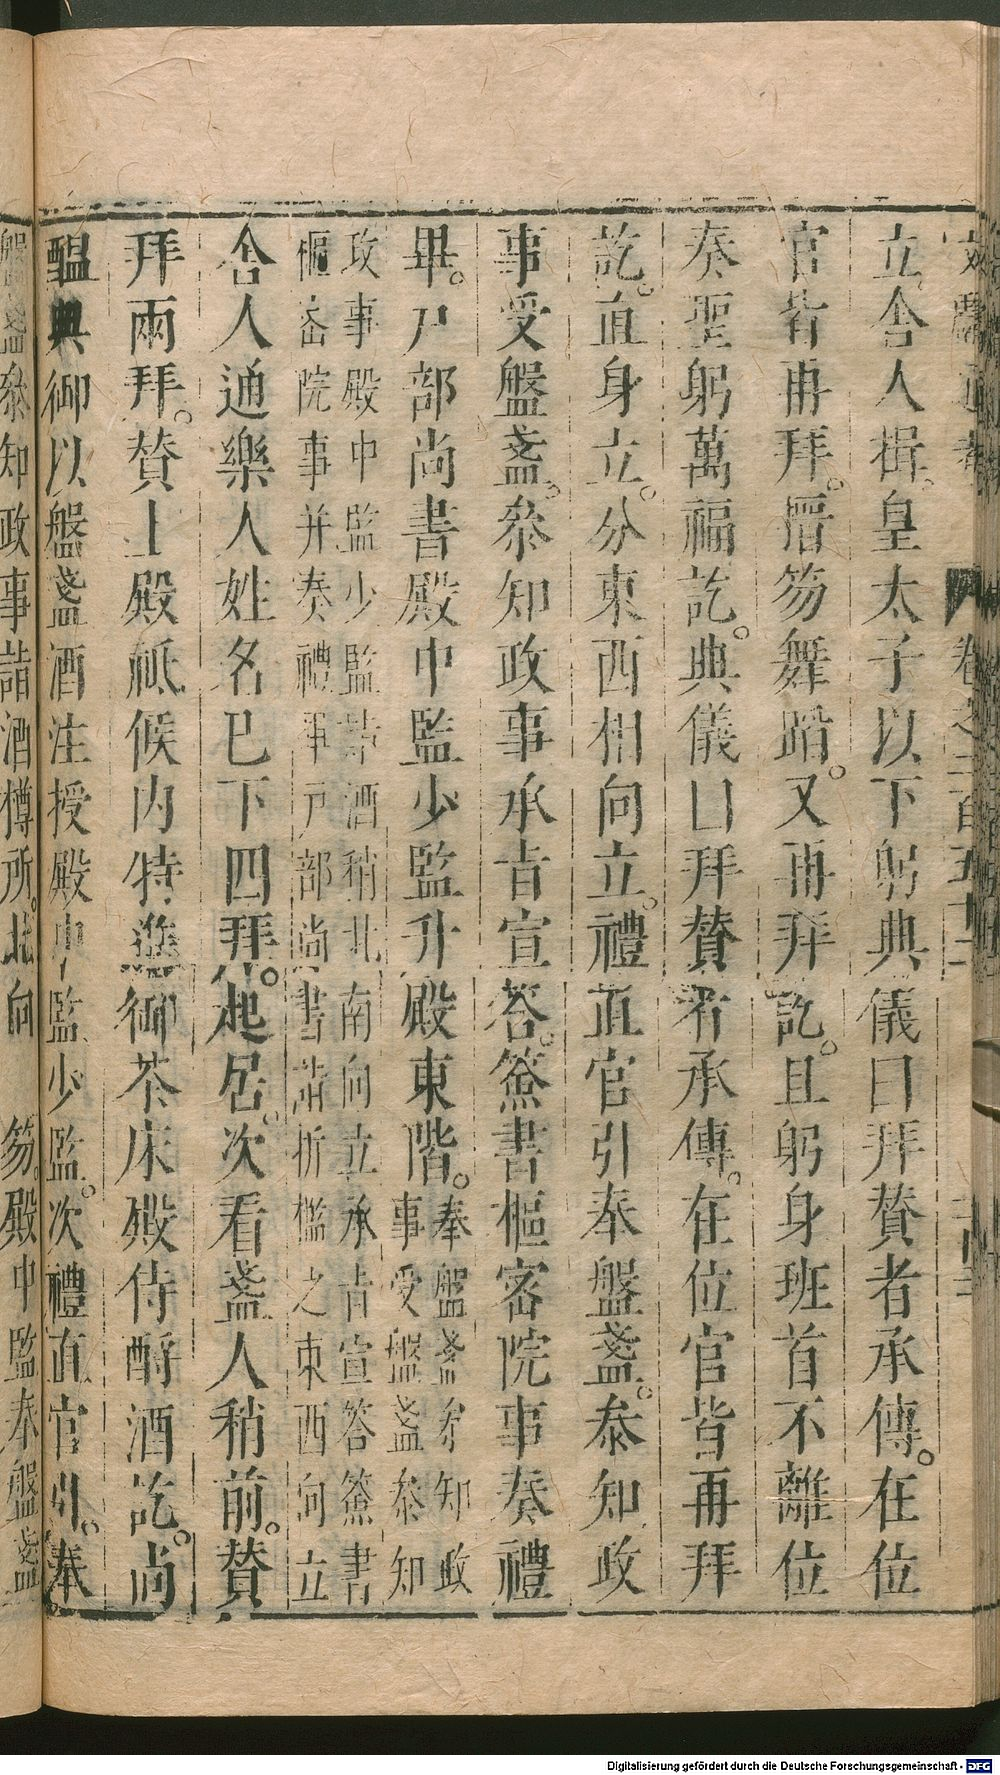 文獻通考 卷之二百五十二
立舎人揖。皇太子以下躬典儀曰拜贊者承傳。在位
官皆再拜。搢笏舞蹈。又再拜訖。且躬身班首不離位
奏聖躬萬福訖。典儀曰拜贊者承傳。在位官皆再拜
訖。直身立。分東西相向立。禮直官引奉盤盞。叅知政
事受盤盞。叅知政事承㫖宣答。簽書樞密院事奏禮
畢。戸部尚書殿中監少監升殿東階。
奉盤盞叅知政
事受盤盞叅知
政事殿中監少監詣酒稍北南向立承㫖宣答簽書
樞密院事并奏禮事戸部尚書詣折檻之東西向立
舎人通樂人姓名已下四拜。起居。次看盞人稍前。贊
拜兩拜。贊上殿祗候内侍進御茶床殿侍酹酒訖。尚
醖典御以盤盞酒注授殿中監少監。次禮直官引。奉
盤盞叅知政事詣酒樽所。北向 笏。殿中監奉盤盞
Digitalisierung gefördert durch die Deutsche Forschungsgemeinschaft - DFG